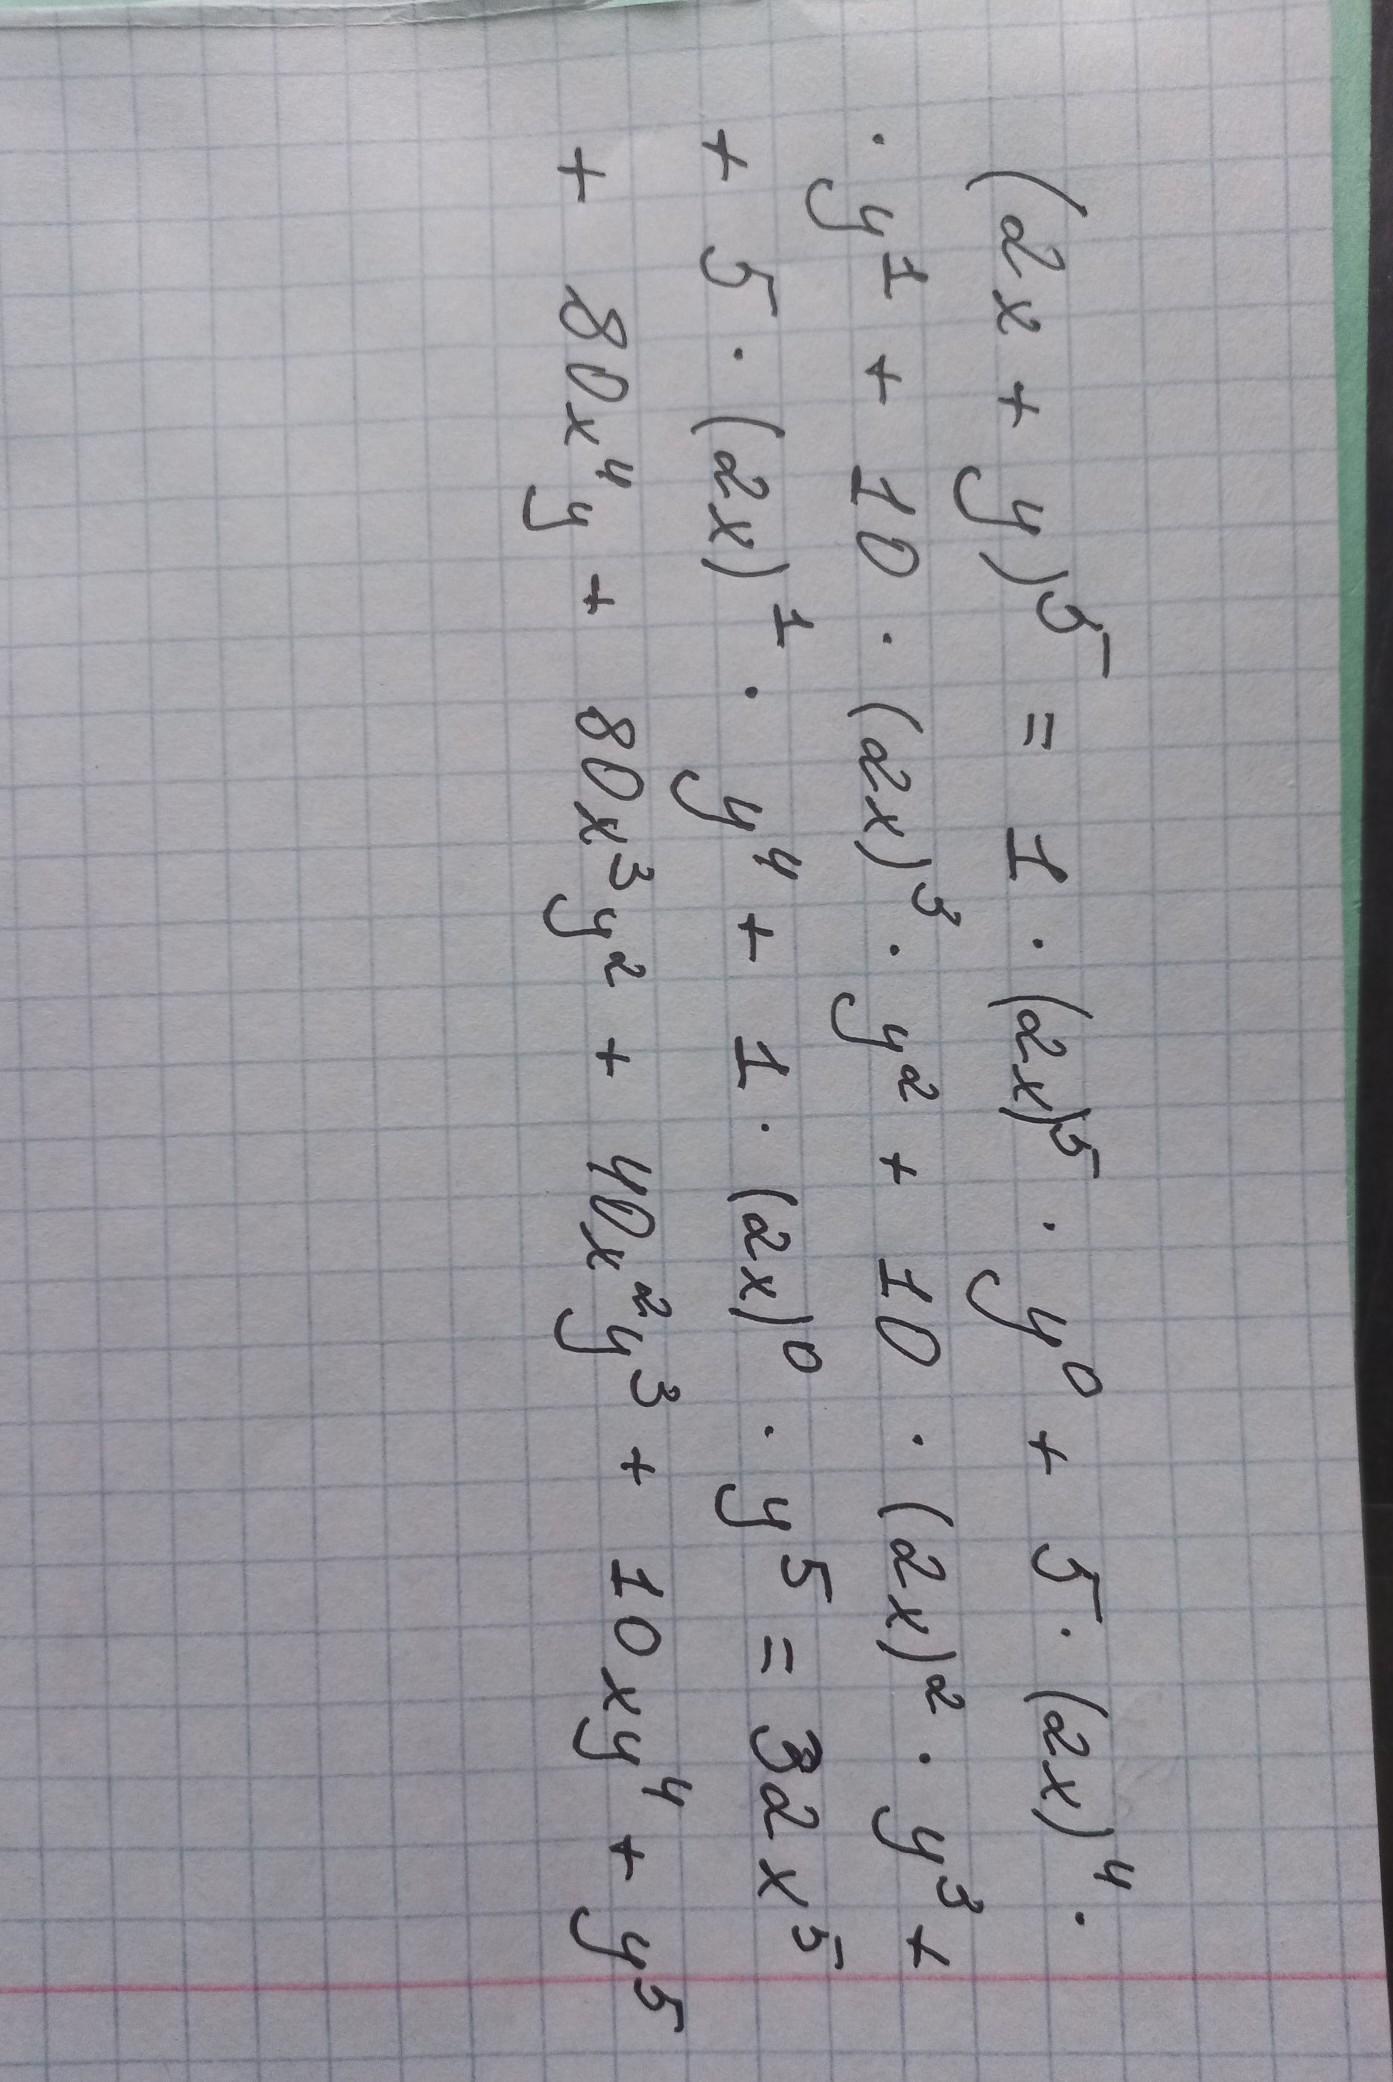 (2x + y)⁵ = 1 · (2x)⁵ · y⁰ + 5 · (2x)⁴ ·
· y¹ + 10 · (2x)³ · y² + 10 · (2x)² · y³ +
+ 5 · (2x)¹ · y⁴ + 1 · (2x)⁰ · y⁵ = 32x⁵
+ 80x⁴y + 80x³y² + 40x²y³ + 10xy⁴ + y⁵